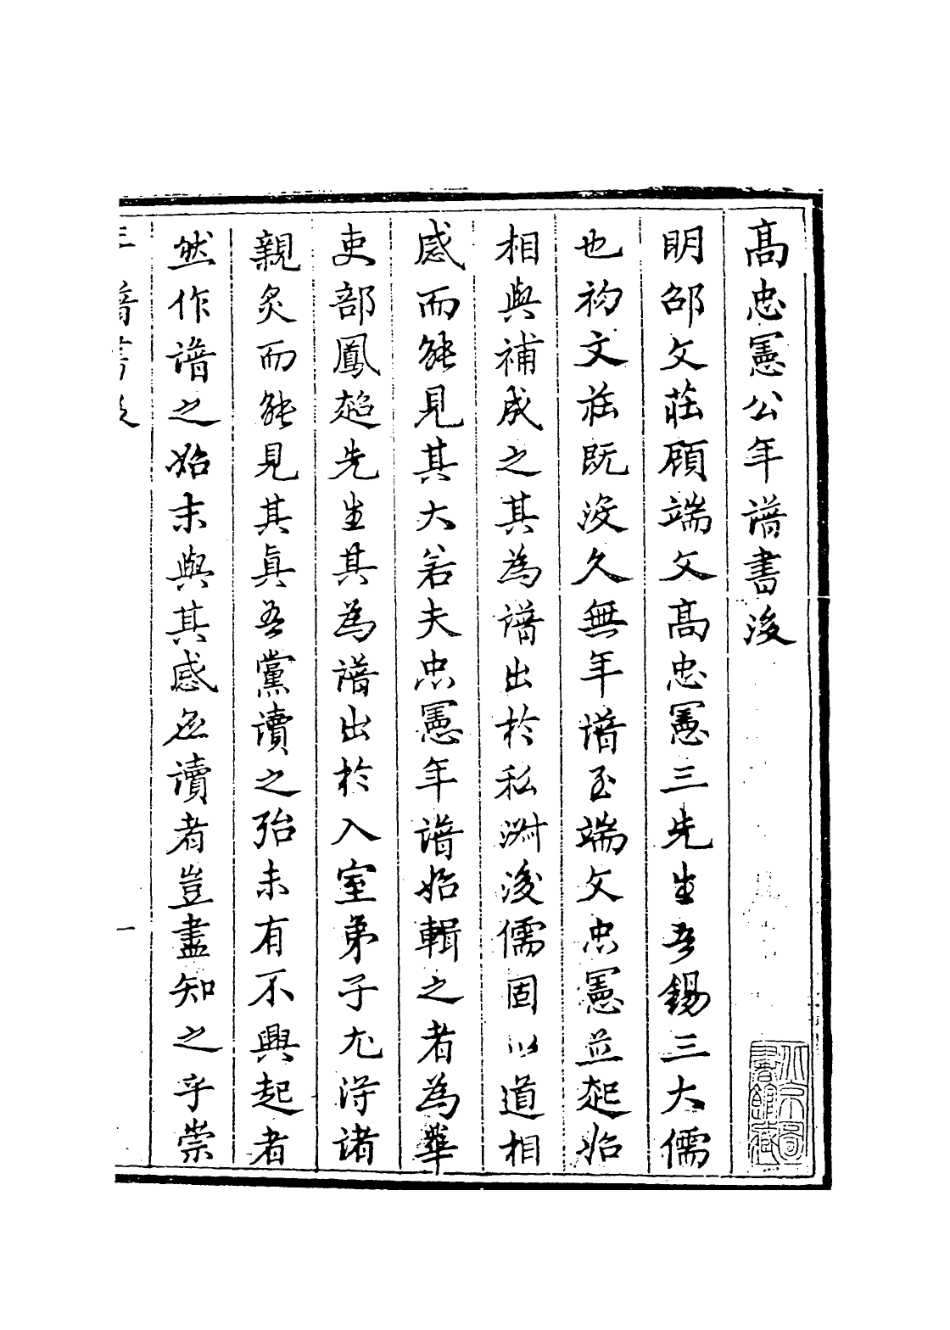 高忠憲公年譜書後
明邵文莊顧端文高忠憲三先生吾錫三大儒
也初文莊既沒久無年譜至端文忠憲並起始
相與補成之其為譜出於私淑後儒固以道相
感而能見其大若夫忠憲年譜始輯之者為華
吏部鳳超先生其為譜出於入室弟子尤得諸
親炙而能見其眞吾黨讀之殆未有不興起者
然作譜之始末與其感讀者豈盡知之乎崇
年譜書後
一
北京圖書館藏